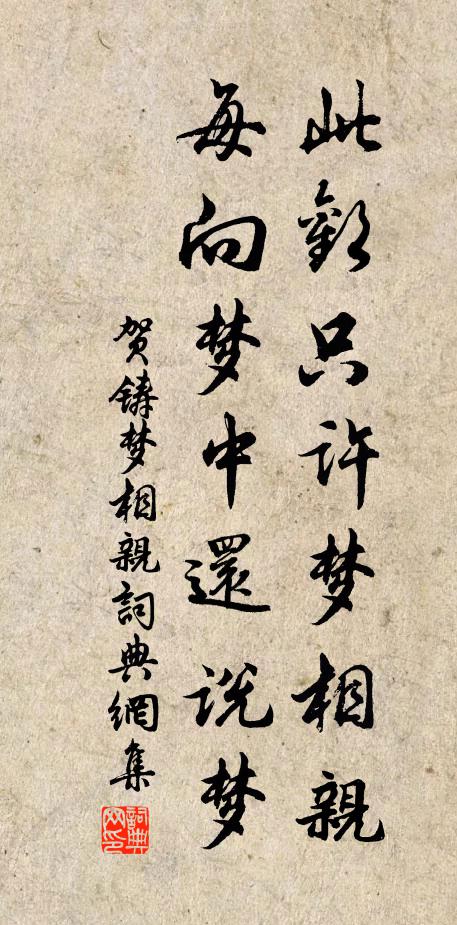 此歡只许梦相親
每向梦中還说梦
贺鑄梦相親詞典網集
詞典网印